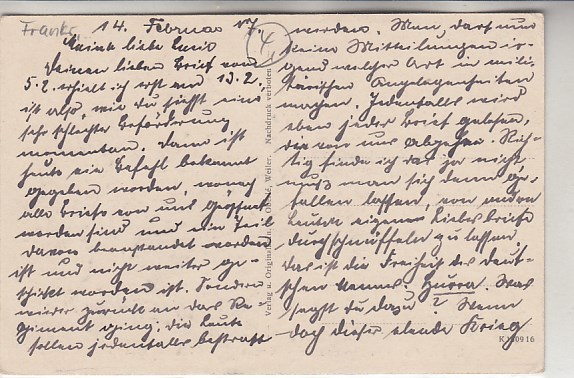 Frankr.
14. Februar 17.
Meine liebe
Deinen lieben Brief vom
5.2. erhielt ich erst am 13.2.,
ist also, wie du siehst eine
sehr schlechte Beförderung
momentan. Dann ist
heute ein Befehl bekannt
gegeben worden, wonach
alle Briefe von uns geöffnet
worden sind und ein Teil
davon beanstandet worden
ist und nicht weiter ge-
schickt worden ist. Sondern
wieder zurück an das Re-
giment ging. Die Leute
sollen jedenfalls bestraft
4
werden. Man darf nun
keine Mitteilungen ir-
gend welcher Art in mili-
tärischen Angelegenheiten
machen. Jedenfalls wird
eben jeder Brief gelesen,
der von uns abgeht. Rich-
tig finde ich das ja nicht
muß man sich denn ge-
fallen lassen, von andern
Leuten eigene Liebesbriefe
durchschnüffeln zu lassen
Das ist die Freiheit des deut-
schen Mannes. Hurra. Was
sagst du dazu? Wenn
doch dieser elende Krieg
Verlag u. Original Weiler. Nachdruck verboten
K 16